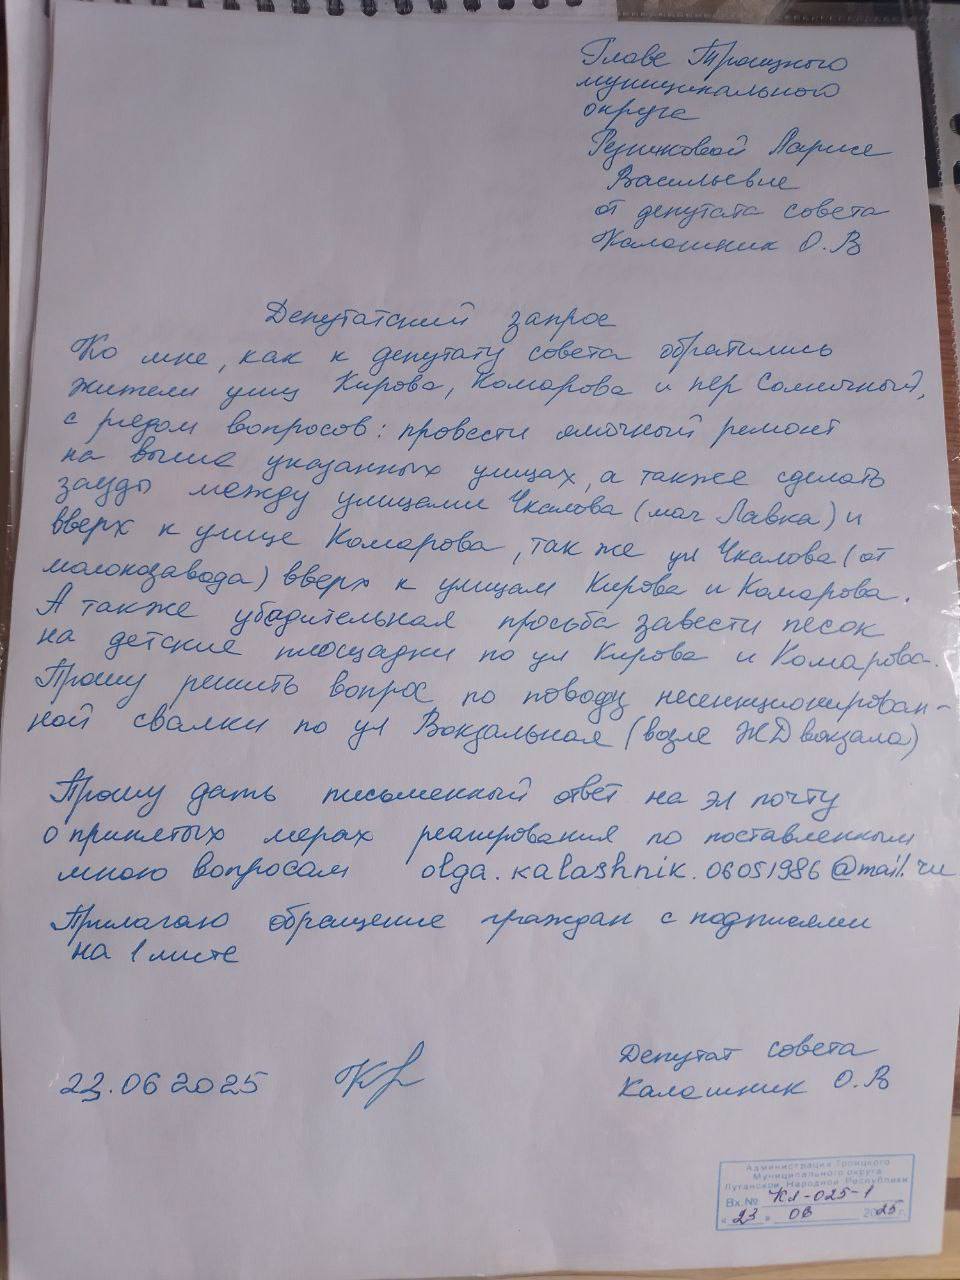 Главе Троицкого
муниципального
округа
Резниковой Ларисе
Васильевне
от депутата совета
Калашник О.В
Депутатский запрос
Ко мне, как к депутату совета обратились
жители улиц Кирова, Комарова и пер Солнечный,
с рядом вопросов: провести ямочный ремонт
на выше указанных улицах, а также сделать
заезды между улицами Чкалова (маг Лавка) и
вверх к улице Комарова, так же ул Чкалова (от
молокозавода) вверх к улицам Кирова и Комарова.
А также убедительная просьба завести песок
на детские площадки по ул Кирова и Комарова.
Прошу решить вопрос по поводу несенкционирован-
ной свалки по ул Вокзальная (возле ЖД вокзала)
Прошу дать письменный ответ на эл почту
о принятых мерах реагирования по поставленным
мною вопросам olga.kalashnik.06051986@mail.ru
Прилагаю обращение граждан с подписями
на 1 листе
Депутат совета
23.06 2025 Калашник О.В
Администрация Троицкого
Муниципального округа
Луганской Народной Республики
Вх.№ Кл-025-1
«23» 06 2025 г.